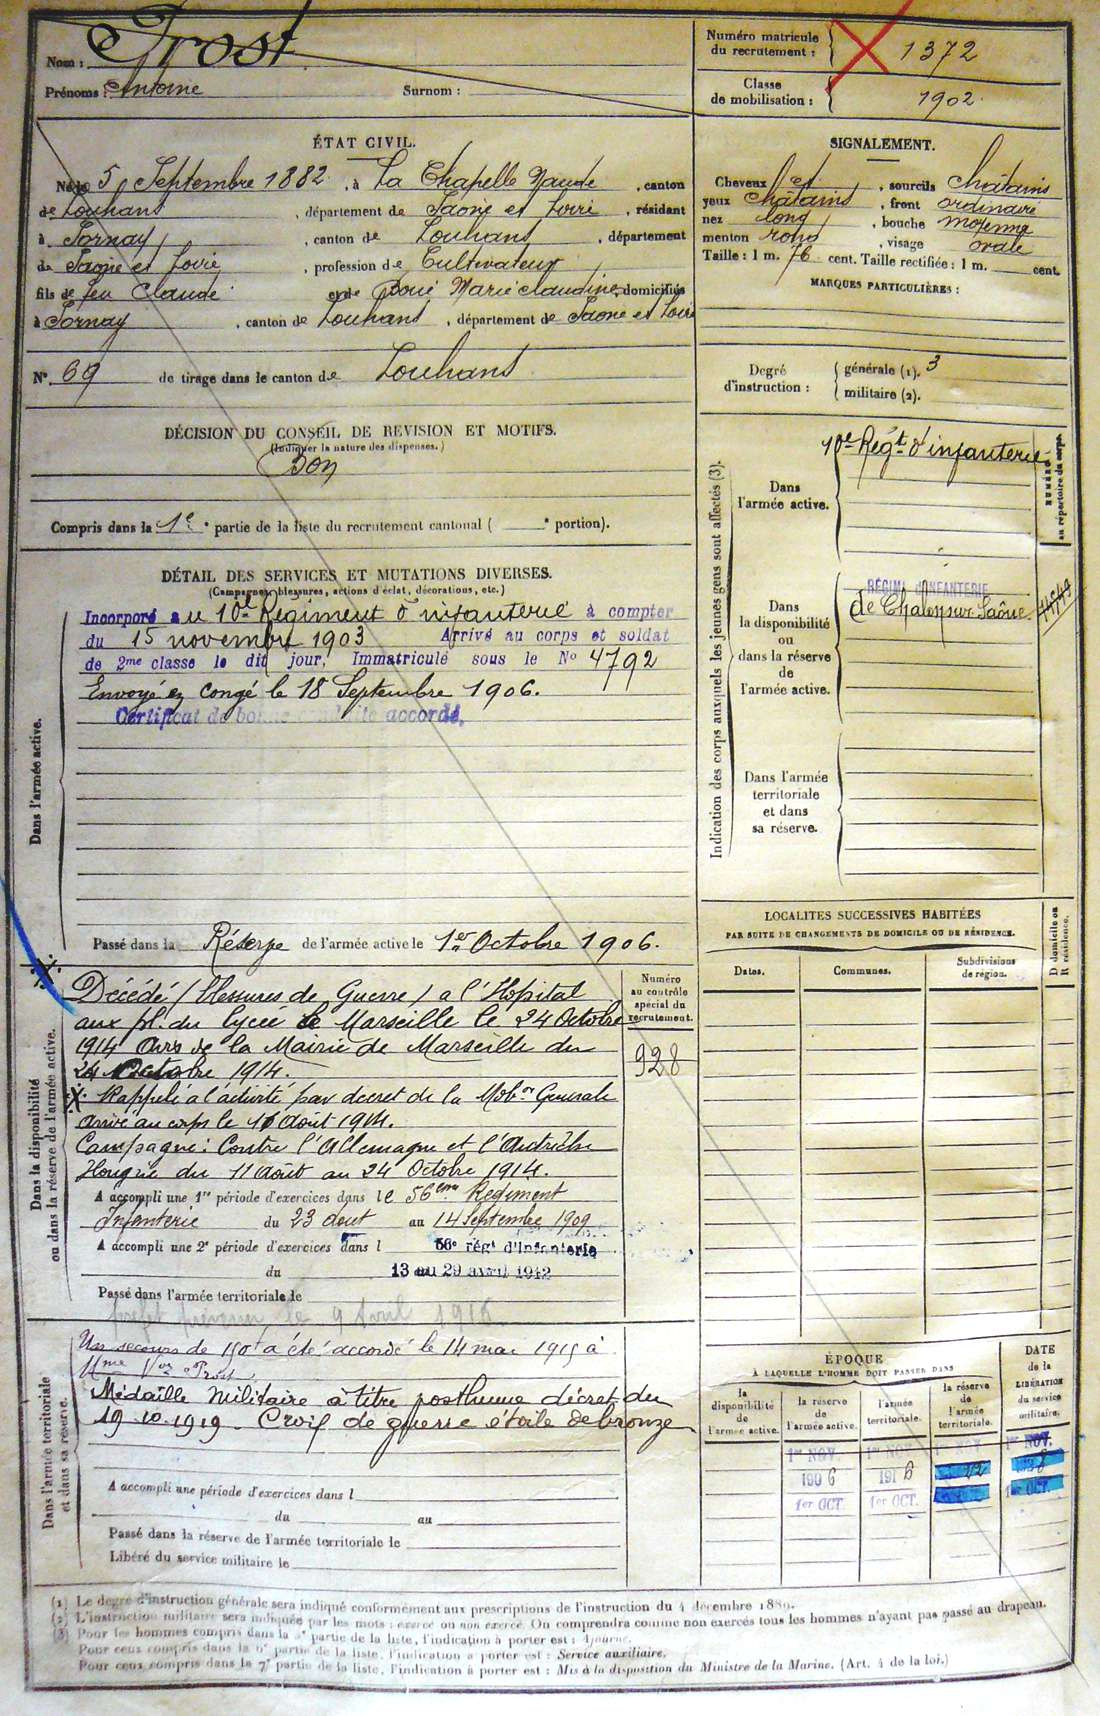 Nom : Prost
Prénoms : Antoine Surnom :
Numéro matricule du recrutement : 1372
Classe de mobilisation : 1902.
ÉTAT CIVIL.
Né le 5 Septembre 1882, à La Chapelle Naude, canton
de Louhans, département de Saône et Loire, résidant
à Sornay, canton de Louhans, département
de Saône et Loire, profession de Cultivateur
fils de feu Claude et de Marie Claudine, domiciliés
à Sornay, canton de Louhans, département de Saone et Loire
N° 69 de tirage dans le canton de Louhans
SIGNALEMENT.
Cheveux et, sourcils châtains
yeux châtains, front ordinaire
nez long, bouche moyenne
menton rond, visage ovale
Taille : 1 m. 76 cent. Taille rectifiée : 1 m. cent.
MARQUES PARTICULIÈRES :
Degré d'instruction :
générale (1). 3
militaire (2).
DÉCISION DU CONSEIL DE REVISION ET MOTIFS.
(Indiquer la nature des dispenses.)
Bon
Compris dans la 1e partie de la liste du recrutement cantonal ( e portion).
DÉTAIL DES SERVICES ET MUTATIONS DIVERSES.
(Campagnes, blessures, actions d'éclat, décorations, etc.)
Dans l'armée active.
Incorporé au 10e Régiment d'infanterie à compter
du 15 novembre 1903 Arrivé au corps et soldat
de 2me classe le dit jour, Immatriculé sous le No 4792
Envoyé en congé le 18 Septembre 1906.
Certificat de bonne conduite accordé.
Passé dans la Réserve de l'armée active le 1er Octobre 1906.
Indication des corps auxquels les jeunes gens sont affectés (3).
NUMÉRO au répertoire du corps.
Dans l'armée active.
10e Régt d'infanterie
Dans la disponibilité ou dans la réserve de l'armée active.
RÉGIMt d'INFANTERIE
de Chalon sur Saône
Dans l'armée territoriale et dans sa réserve.
LOCALITES SUCCESSIVES HABITÉES
PAR SUITE DE CHANGEMENTS DE DOMICILE OU DE RÉSIDENCE.
Dates. Communes. Subdivisions de région.
D domicile ou R résidence.
Dans la disponibilité ou dans la réserve de l'armée active.
Numéro au contrôle spécial du recrutement.
928
Décédé (blessures de Guerre) a l'Hopital
aux pl. du lycée de Marseille le 24 Octobre
1914 Avis de la Mairie de Marseille du
24 Octobre 1914.
Rappelé à l'activité par decret de la Mobon Generale
arrivé au corps le 11 Août 1914.
Campagne : Contre l'Allemagne et l'Autriche
Hongrie du 11 Août au 24 Octobre 1914.
A accompli une 1re période d'exercices dans le 56ème Régiment
Infanterie du 23 aout au 14 Septembre 1909
A accompli une 2e période d'exercices dans l 56e régt d'Infanterie
du 13 au 29 avril 1912
Passé dans l'armée territoriale le
le 9 Avril
Dans l'armée territoriale et dans sa réserve.
Un secours de 150f a été accordé le 14 mai 1915 à
Mme Vve Prost
Médaille militaire à titre posthume décret du
19.10.1919 Croix de guerre étoile de bronze
A accompli une période d'exercices dans l
du au
Passé dans la réserve de l'armée territoriale le
Libéré du service militaire le
ÉPOQUE
À LAQUELLE L'HOMME DOIT PASSER DANS
DATE de la LIBÉRATION du service militaire.
la disponibilité de l'armée active. la réserve de l'armée active. l'armée territoriale. la réserve de l'armée territoriale.
1er NOV. 1er NOV. 1er NOV. 1er NOV.
1906 1916 22 8
1er OCT. 1er OCT. 1er OCT.
(1) Le degré d'instruction générale sera indiqué conformément aux prescriptions de l'instruction du 4 décembre 1889.
(2) L'instruction militaire sera indiquée par les mots : exercé ou non exercé. On comprendra comme non exercés tous les hommes n'ayant pas passé au drapeau.
(3) Pour les hommes compris dans la partie de la liste, l'indication à porter est : Ajourné.
Pour ceux compris dans la partie de la liste, l'indication à porter est : Service auxiliaire.
Pour ceux compris dans la 7e partie de la liste, l'indication à porter est : Mis à la disposition du Ministre de la Marine. (Art. 4 de la loi.)